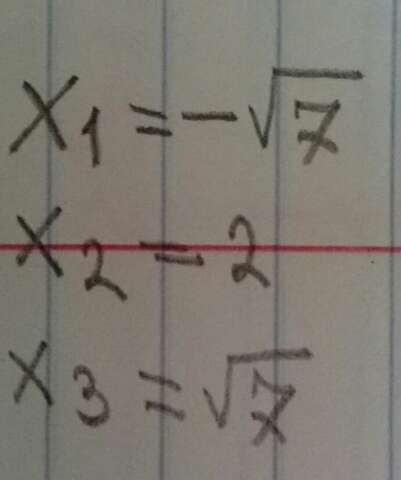 x₁ = -√7
x₂ = 2
x₃ = √7